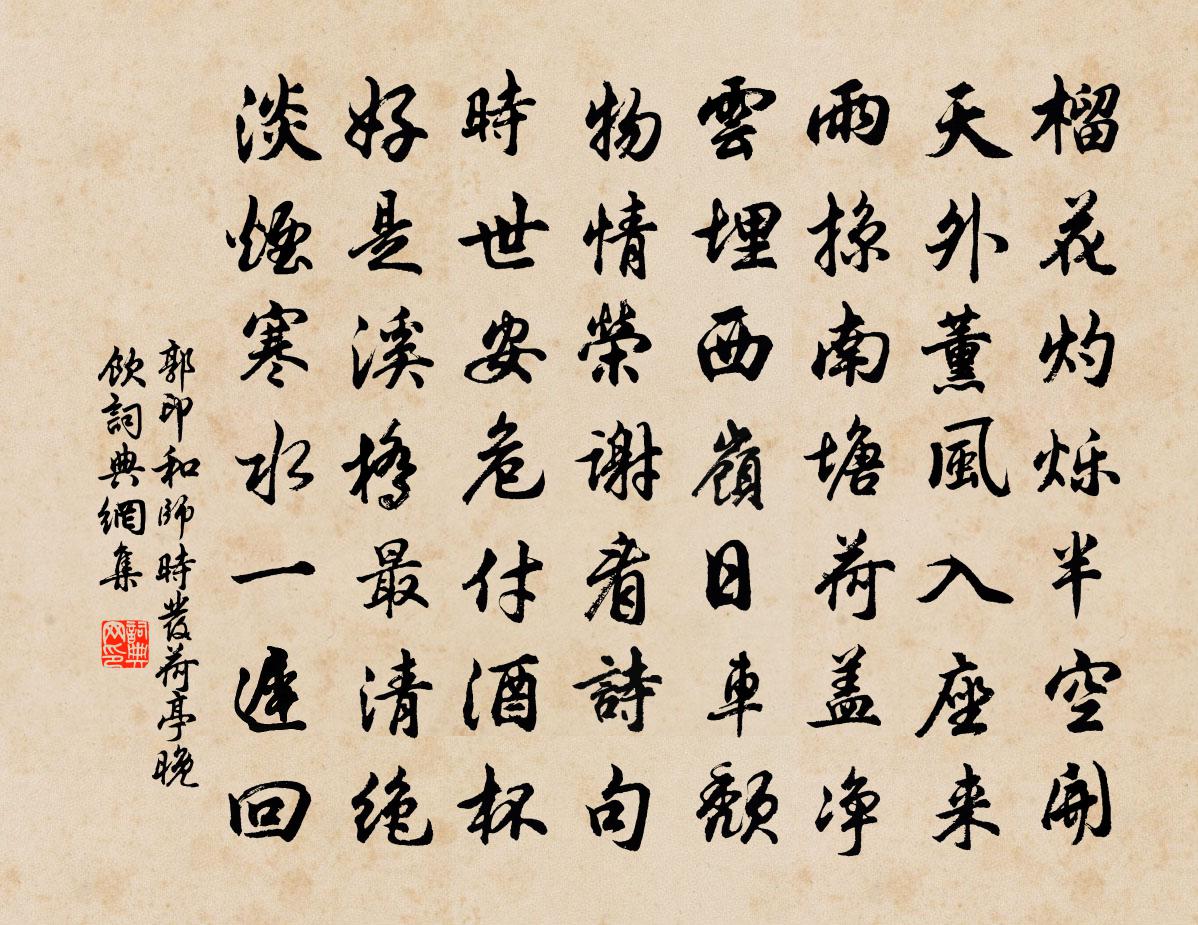 榴花灼烁半空開
天外薰風入座来
雨掠南塘荷盖净
雲埋西嶺日車颓
物情榮謝看詩句
時世安危付酒杯
好是溪橋最清绝
淡煙寒水一遲回
郭印和師時發荷亭晚
飲詞典網集
詞典网印